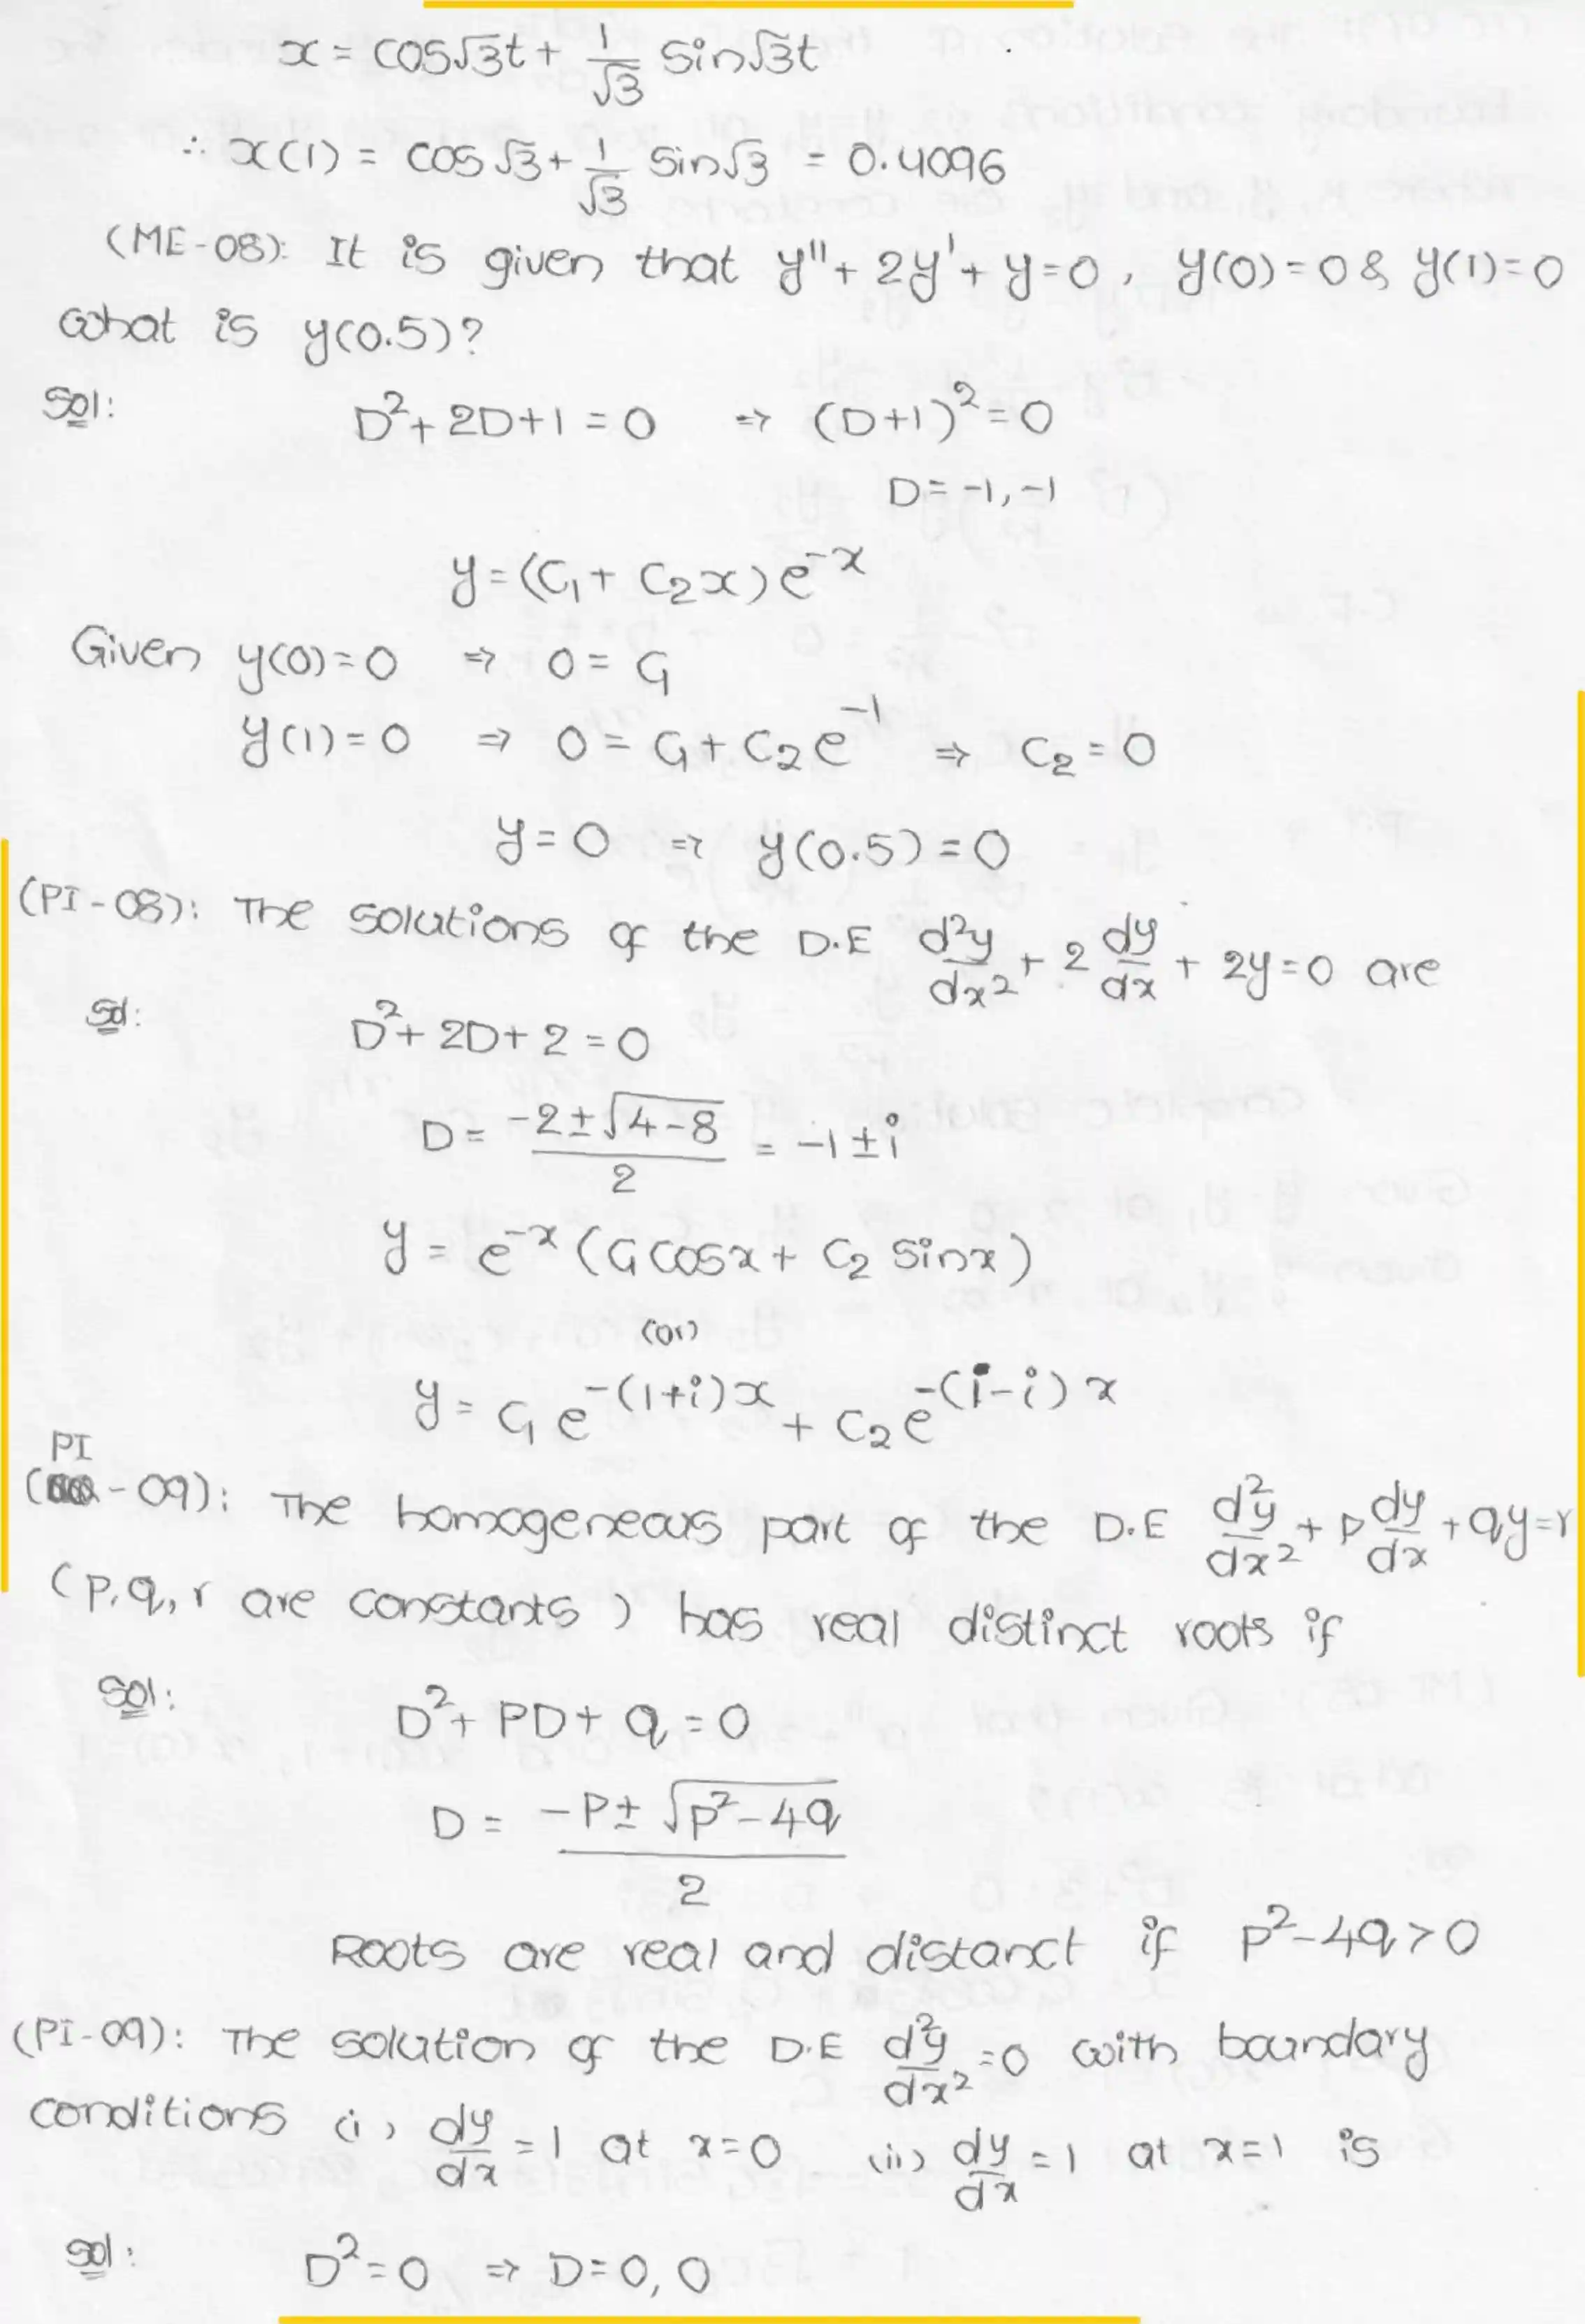 x = cos√3t + 1/√3 sin√3t
∴ x(1) = cos√3 + 1/√3 sin√3 = 0.4096
(ME-08): It is given that y"+ 2y'+ y=0, y(0)=0 & y(1)=0
what is y(0.5)?
Sol: D²+ 2D+1 = 0 ⇒ (D+1)²=0
D= -1,-1
y=(C₁+ C₂x)e⁻ˣ
Given y(0)=0 ⇒ 0= C₁
y(1)=0 ⇒ 0= C₁+ C₂e⁻¹ ⇒ C₂=0
y=0 ⇒ y(0.5)=0
(PI-08): The solutions of the D.E d²y/dx² + 2 dy/dx + 2y=0 are
Sol: D²+ 2D+ 2 =0
D= (-2±√4-8)/2 = -1±i
y = e⁻ˣ (C₁cosx+ C₂ sinx)
(or)
y= C₁e^-(1+i)x + C₂e^-(i-i)x
PI
( -09): The homogeneous part of the D.E d²y/dx² + p dy/dx +qy=r
(p,q,r are constants) has real distinct roots if
Sol: D²+ PD+ q=0
D= (-P± √p²-4q)/2
Roots are real and distanct if p²-4q>0
(PI-09): The solution of the D.E d²y/dx²=0 with boundary
conditions (i) dy/dx =1 at x=0 (ii) dy/dx =1 at x=1 is
Sol: D²=0 ⇒ D=0,0